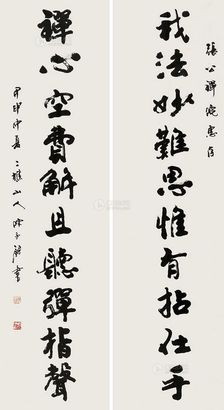 張公禪院
我法妙難思惟有拈花手
禪心空費解且聽彈指聲
甲申仲夏二樵山人書